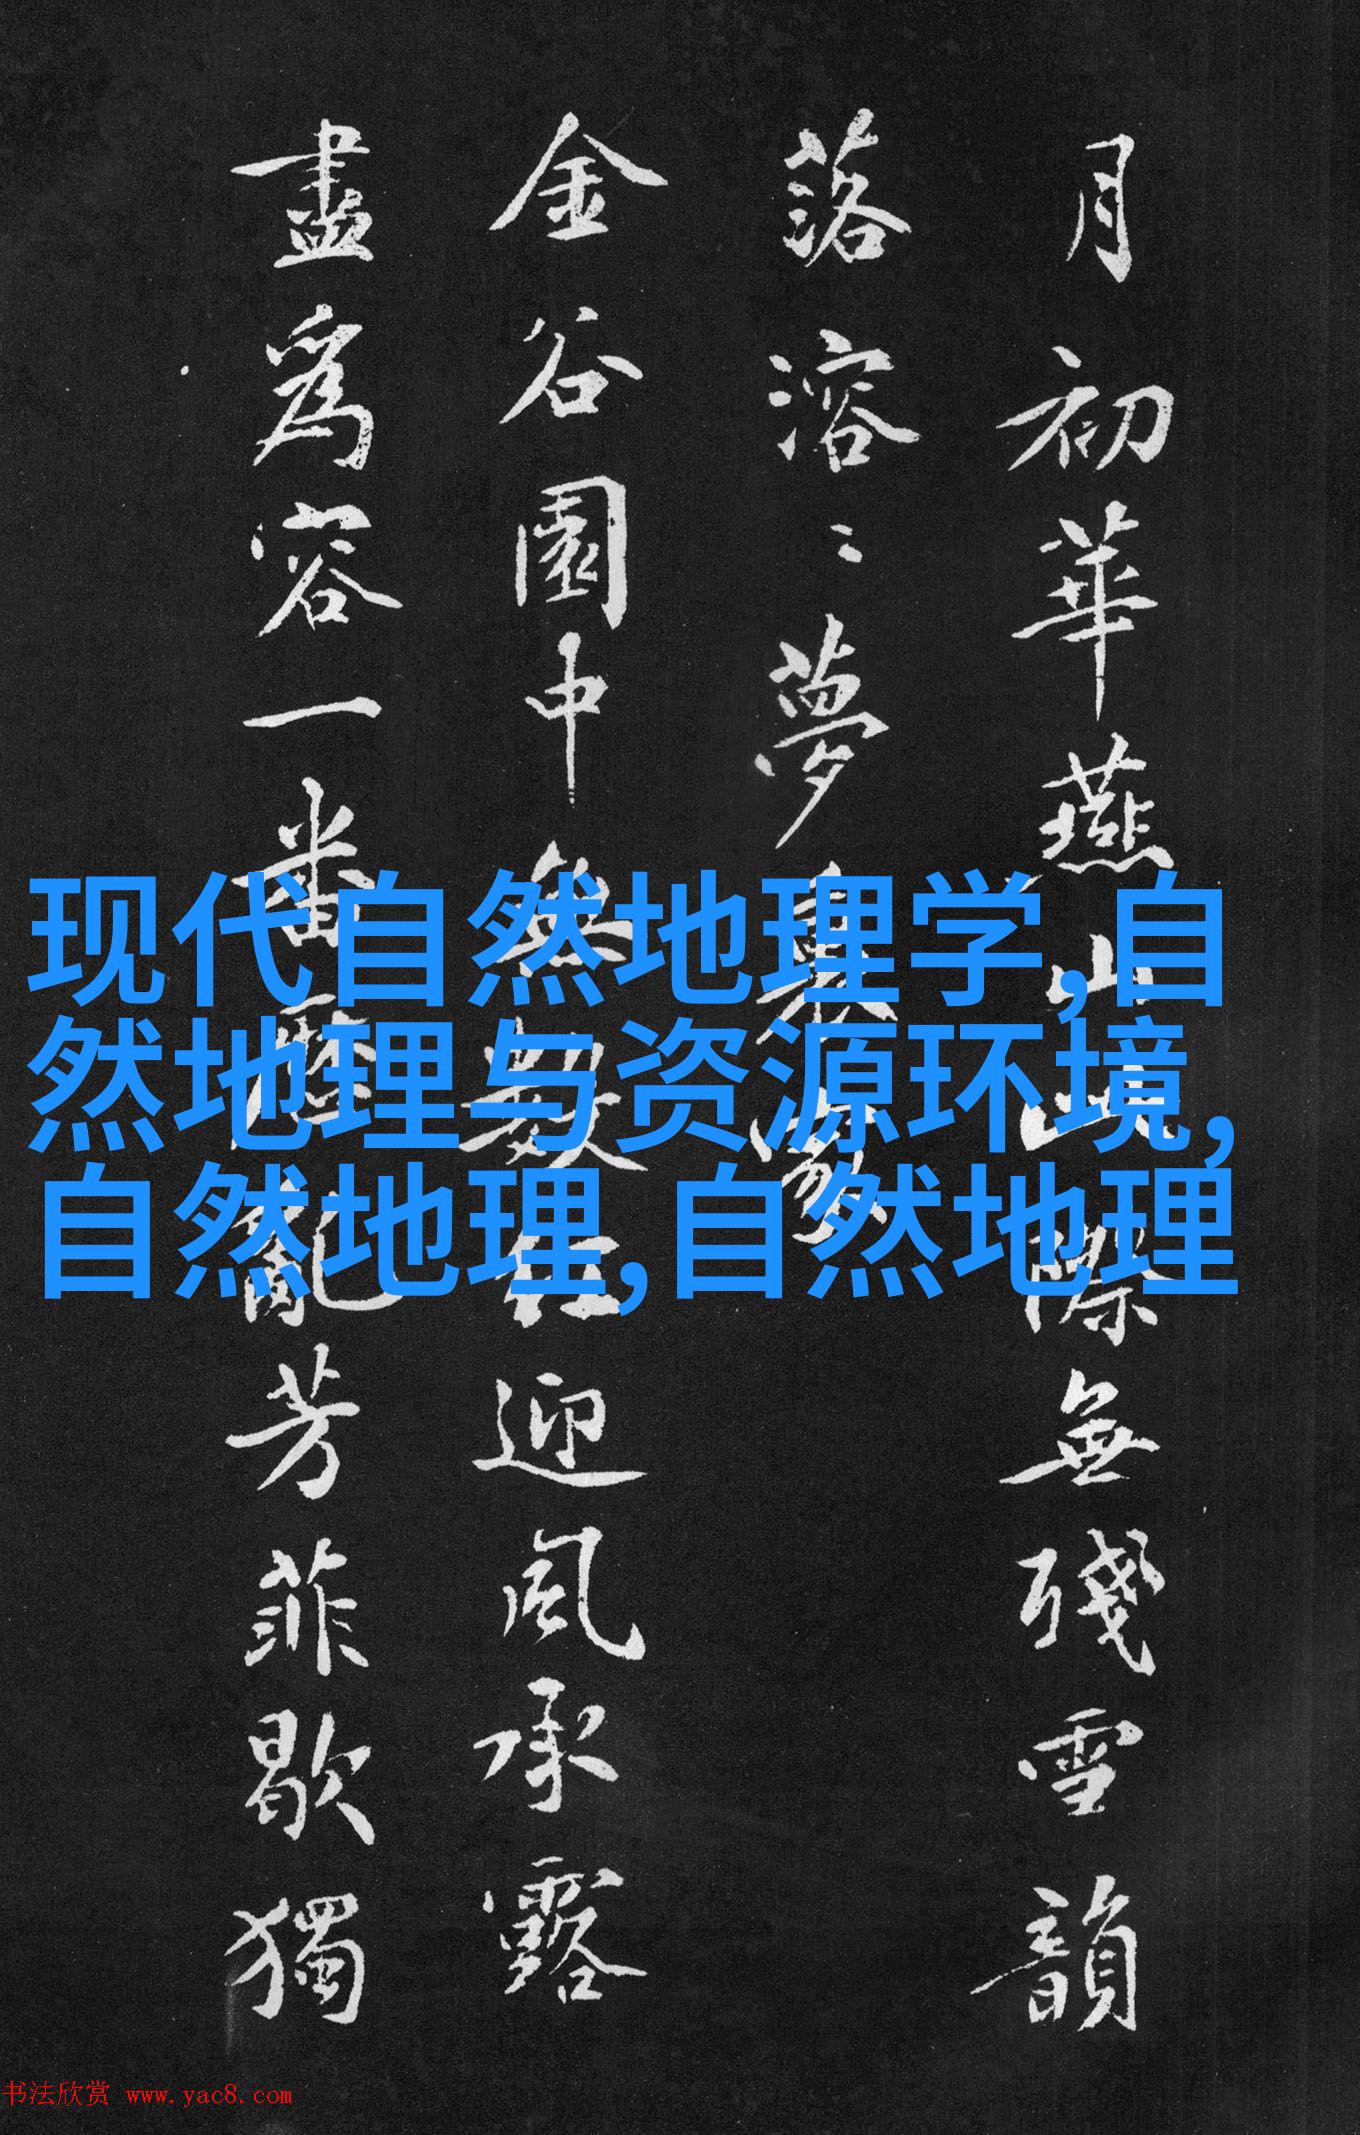 月初華燕山山際無殘雪韻
落溶〻夢裏家
金谷園中無數紅迎風承露
盡爲容一番歷亂芳菲歇獨
现代自然地理学,自
然地理与资源环境,
自然地理,自然地理
书法欣赏 www.yac8.com